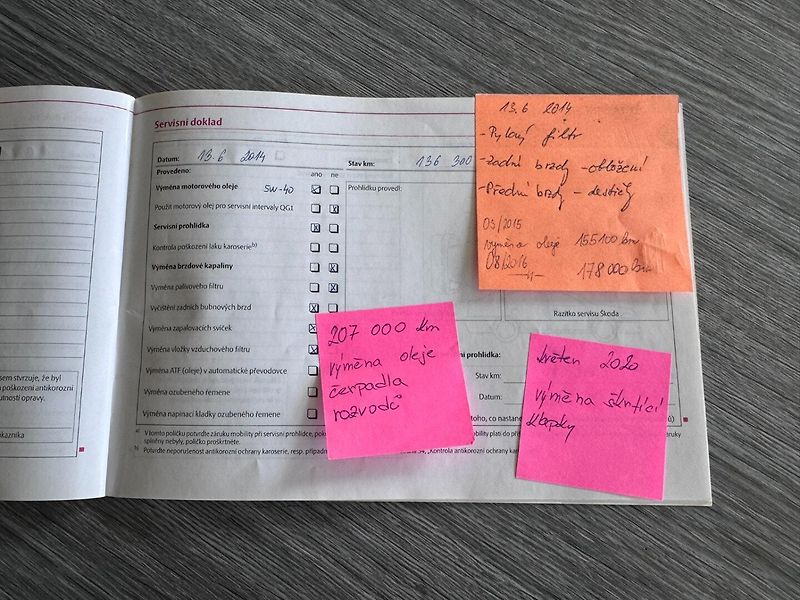 Servisní doklad
Datum: 13.6 2014
Stav km: 136 300
Provedeno: ano ne
Výměna motorového oleje 5W-40
Prohlídku provedl:
Použit motorový olej pro servisní intervaly QG1
Servisní prohlídka
Kontrola poškození laku karoserie b)
Výměna brzdové kapaliny
Výměna palivového filtru
Vyčištění zadních bubnových brzd
Výměna zapalovacích svíček
Výměna vložky vzduchového filtru
Výměna ATF (oleje) v automatické převodovce
Výměna ozubeného řemene
Výměna napínací kladky ozubeného řemene
Razítko servisu Škoda
prohlídka:
Stav km:
Datum:
toho, co nastane
a) V tomto políčku potvrďte záruku mobility při servisní prohlídce,
mobility platí do
záruky
splněny nebyly, políčko proškrtněte.
b) Potvrďte neporušenost antikorozní ochrany karoserie, resp.
„Kontrola antikorozní ochrany
13.6 2014
- Pylový filtr
- Zadní brzdy - obložení
- Přední brzdy - destičky
03/2015
výměna oleje 155100 km
08/2016
—"— 178 000 km
207 000 km
výměna oleje
čerpadla
rozvodů
květen 2020
výměna škrtící
klapky
sem stvrzuje, že byl
poškození antikorozní
nutnosti opravy.
ákazníka